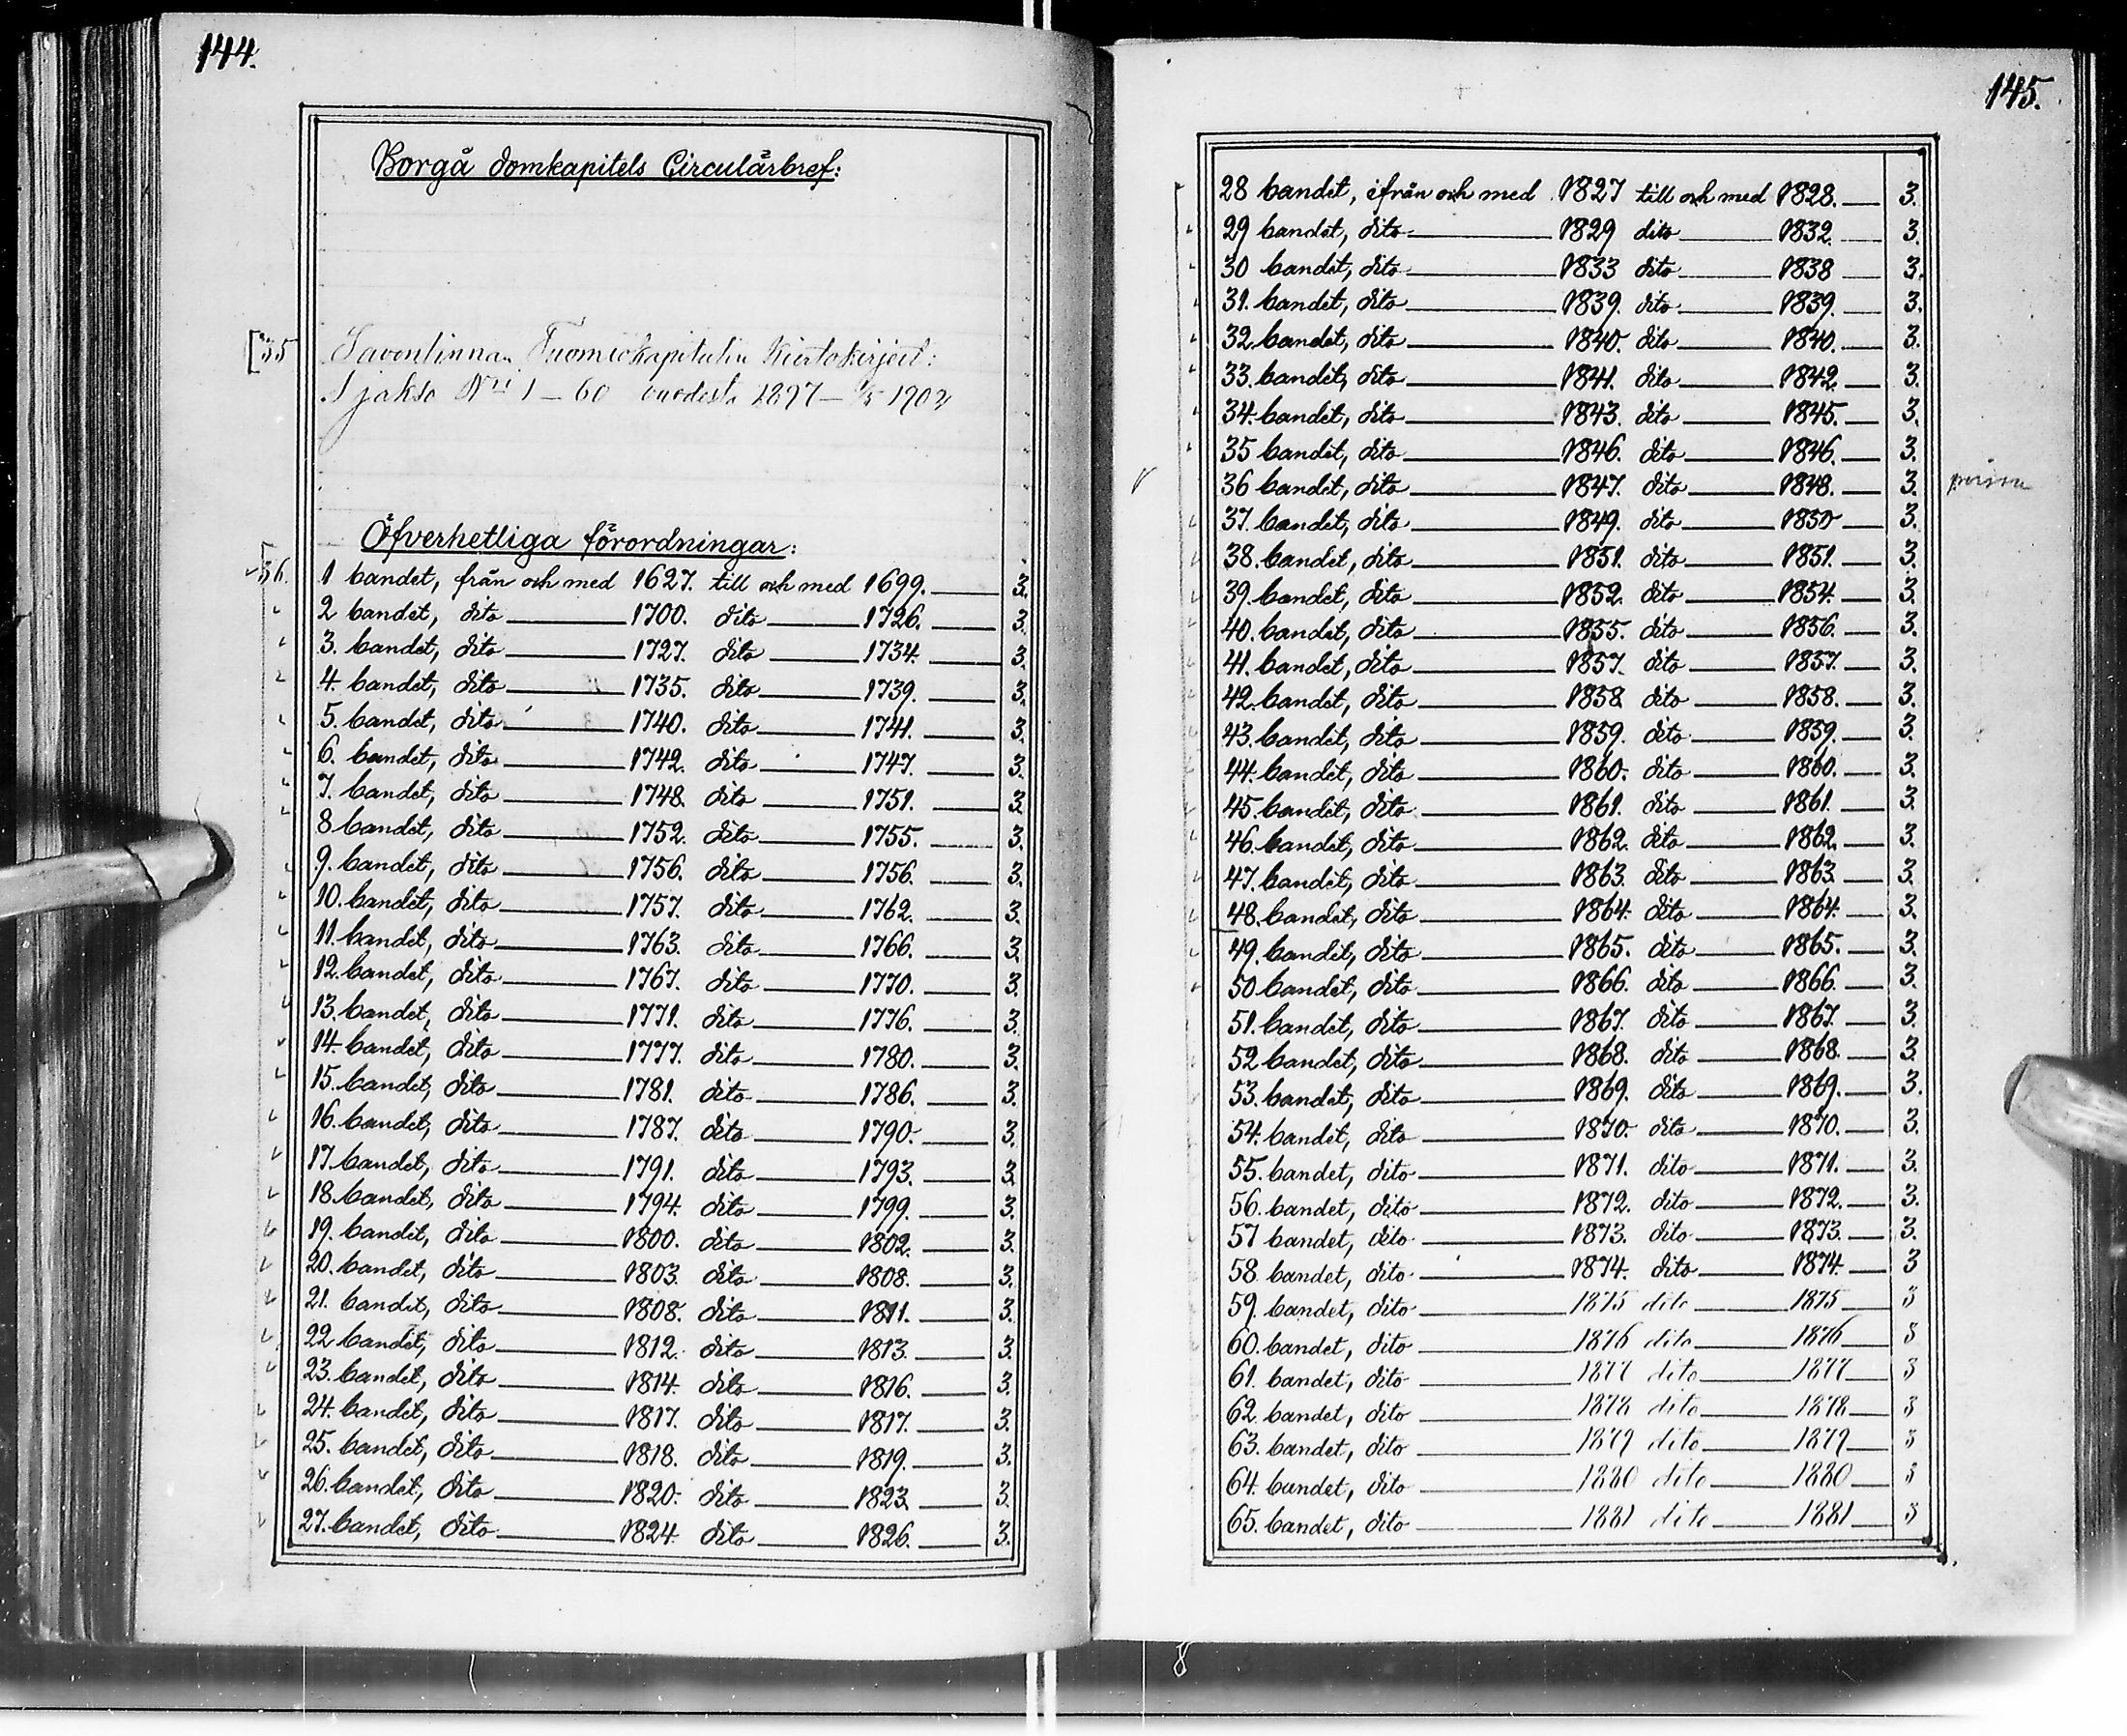 144.
Borgå domkapitels Circulärbref:
[35 Savonlinnan Tuomiokapitulin Kiertokirjeet:
I jakso N:ri 1–60 vuodesta 1897 – 1/5 1903
Öfverhetliga förordningar:
36. 1 bandet, från och med 1627. till och med 1699. 3.
2 bandet, dito 1700. dito 1726. 3.
3. bandet, dito 1727. dito 1734. 3.
4. bandet, dito 1735. dito 1739. 3.
5. bandet, dito 1740. dito 1741. 3.
6. bandet, dito 1742. dito 1747. 3.
7. bandet, dito 1748. dito 1751. 3.
8 bandet, dito 1752. dito 1755. 3.
9. bandet, dito 1756. dito 1756. 3.
10. bandet, dito 1757. dito 1762. 3.
11. bandet, dito 1763. dito 1766. 3.
12. bandet, dito 1767. dito 1770. 3.
13. bandet, dito 1771. dito 1776. 3.
14. bandet, dito 1777. dito 1780. 3.
15. bandet, dito 1781. dito 1786. 3.
16. bandet, dito 1787. dito 1790. 3.
17. bandet, dito 1791. dito 1793. 3.
18. bandet, dito 1794. dito 1799. 3.
19. bandet, dito 1800. dito 1802. 3.
20. bandet, dito 1803. dito 1808. 3.
21. bandet, dito 1808. dito 1811. 3.
22 bandet, dito 1812. dito 1813. 3.
23. bandet, dito 1814. dito 1816. 3.
24. bandet, dito 1817. dito 1817. 3.
25. bandet, dito 1818. dito 1819. 3.
26. bandet, dito 1820. dito 1823. 3.
27. bandet, dito 1824. dito 1826. 3.
145.
28 bandet, ifrån och med 1827 till och med 1828. 3.
29 bandet, dito 1829 dito 1832. 3.
30 bandet, dito 1833 dito 1838 3.
31. bandet, dito 1839. dito 1839. 3.
32 bandet, dito 1840. dito 1840. 3.
33. bandet, dito 1841. dito 1842. 3.
34. bandet, dito 1843. dito 1845. 3.
35 bandet, dito 1846. dito 1846. 3.
36 bandet, dito 1847. dito 1848. 3.
37. bandet, dito 1849. dito 1850 3.
38. bandet, dito 1851. dito 1851. 3.
39. bandet, dito 1852. dito 1854. 3.
40. bandet, dito 1855. dito 1856. 3.
41. bandet, dito 1857. dito 1857. 3.
42. bandet, dito 1858. dito 1858. 3.
43. bandet, dito 1859. dito 1859. 3.
44. bandet, dito 1860. dito 1860. 3.
45. bandet, dito 1861. dito 1861. 3.
46. bandet, dito 1862. dito 1862. 3.
47. bandet, dito 1863. dito 1863. 3.
48. bandet, dito 1864. dito 1864. 3.
49. bandet, dito 1865. dito 1865. 3.
50 bandet, dito 1866. dito 1866. 3.
51. bandet, dito 1867. dito 1867. 3.
52 bandet, dito 1868. dito 1868. 3.
53. bandet, dito 1869. dito 1869. 3.
54. bandet, dito 1870. dito 1870. 3.
55. bandet, dito 1871. dito 1871. 3.
56. bandet, dito 1872. dito 1872. 3.
57 bandet, dito 1873. dito 1873. 3.
58. bandet, dito 1874. dito 1874. 3
59. bandet, dito 1875 dito 1875 3
60. bandet, dito 1876 dito 1876 3
61. bandet, dito 1877 dito 1877 3
62. bandet, dito 1878 dito 1878 3
63. bandet, dito 1879 dito 1879 3
64. bandet, dito 1880 dito 1880 3
65. bandet, dito 1881 dito 1881 3